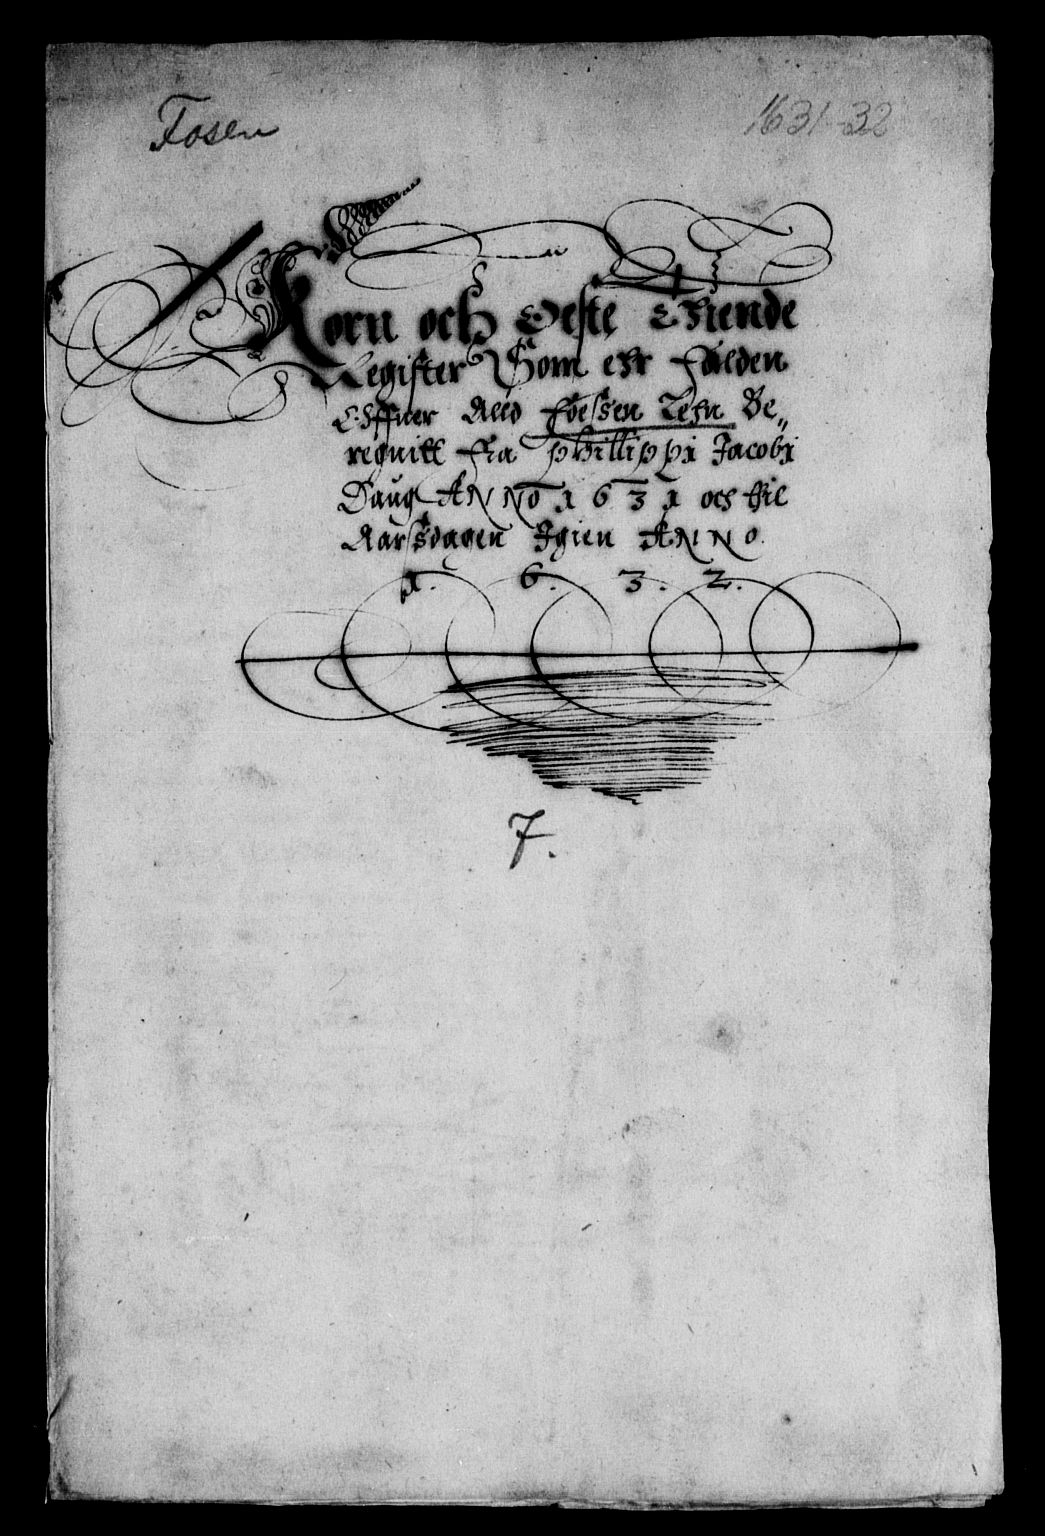 Fosen
1631-32
Korn och Oste Thiende
Register Som ehr falden
Offuer Ald Foessen Lehn Be„
regnitt fra Phillippi Jacobi
Daug ANNO 1631 och til
Aarsdagen Igien ANNO.
1. 6. 3. 2.
7.